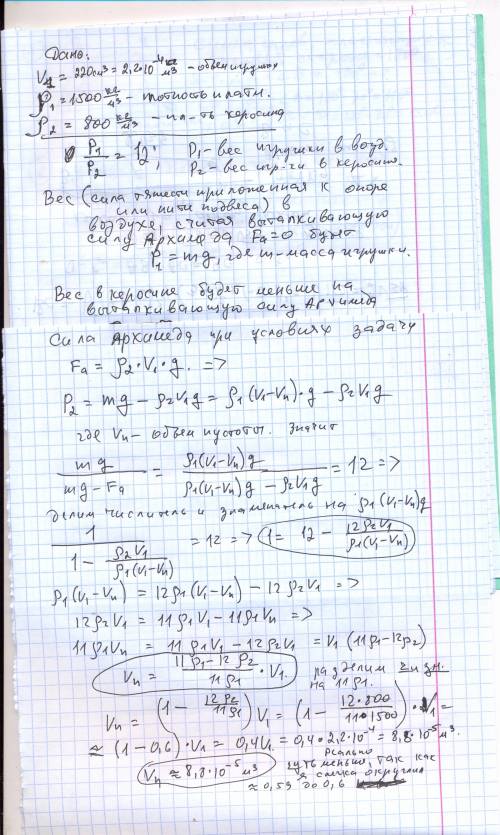 Дано:
V₁ = 220см³ = 2,2·10⁻⁴ м³ - объем игрушки
ρ₁ = 1500 кг/м³ - плотность пластм.
ρ₂ = 800 кг/м³ - пл-ть керосина
P₁/P₂ = 12; P₁ - вес игрушки в возд.
P₂ - вес игр-ки в керосине.
Вес (сила тяжести приложенная к опоре
или нити подвеса) в
воздухе, считая выталкивающую
силу Архимеда Fa=0 будет
P₁ = mg, где m-масса игрушки.
Вес в керосине будет меньше на
выталкивающую силу Архимеда
Сила Архимеда при условиях задачи
Fa = ρ₂·V₁·g. =>
P₂ = mg - ρ₂V₁g = ρ₁(V₁-Vп)·g - ρ₂V₁g
где Vп - объем пустоты. Значит
mg/(mg-Fa) = ρ₁(V₁-Vп)g/(ρ₁(V₁-Vп)g - ρ₂V₁g) = 12 =>
делим числитель и знаменатель на ρ₁(V₁-Vп)g
1/(1 - ρ₂V₁/(ρ₁(V₁-Vп))) = 12 => 1 = 12 - 12ρ₂V₁/(ρ₁(V₁-Vп))
ρ₁(V₁-Vп) = 12ρ₁(V₁-Vп) - 12ρ₂V₁ =>
12ρ₂V₁ = 11ρ₁V₁ - 11ρ₁Vп =>
11ρ₁Vп = 11ρ₁V₁ - 12ρ₂V₁ = V₁(11ρ₁-12ρ₂)
Vп = (11ρ₁-12ρ₂)/(11ρ₁) · V₁. разделим ч и зн.
на 11ρ₁.
Vп = (1 - 12ρ₂/11ρ₁) V₁ = (1 - 12·800/11·1500) · V₁ =
≈ (1-0,6)·V₁ = 0,4V₁ = 0,4·2,2·10⁻⁴ = 8,8·10⁻⁵ м³.
Vп ≈ 8,8·10⁻⁵ м³
реально
чуть меньше, так как
я слегка округлил
≈ 0,59 до 0,6